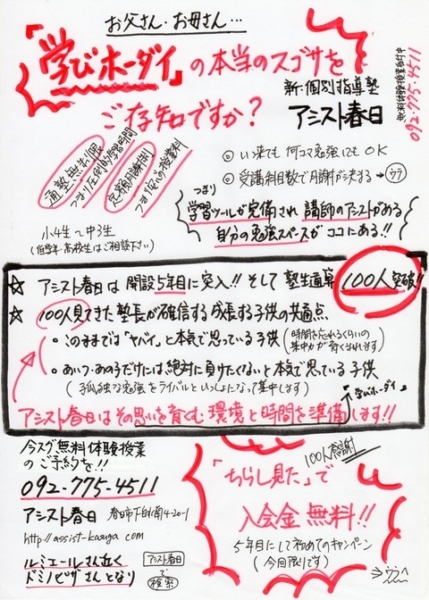 お父さん・お母さん…
「学びホーダイ」の本当のスゴサを
ご存知ですか？
新・個別指導塾
アシスト春日
無料体験授業受付中
092-775-4511
通塾無制限
つまり圧倒的学習時間
定額月謝制
つまり安心の授業料
◎ いつ来ても 何コマ勉強してもOK
◎ 受講科目数で月謝が決まる → ウラ
つまり
学習ツールが完備され 講師のアシストがある
自分の勉強スペースがココにある!!
小4生〜中3生
(低学年・高校生はご相談下さい)
☆ アシスト春日は開設5年目に突入!! そして 塾生通算 100人突破!!
☆ 100人見てきた塾長が確信する成長する子供の共通点
・このままでは「ヤバイ」と本気で思っている子供(時間を忘れるくらいの集中力が育くまれます)
・あいつ・あの子だけには絶対に負けたくないと本気で思っている子供
(孤独な勉強をライバルといっしょになって集中します)
「学びホーダイ」
アシスト春日はその思いを育くむ環境と時間を準備します!!
今スグ無料体験授業
のご予約を!!
092-775-4511
アシスト春日 春日市下白水南4-20-1
http://assist-kasuga.com
ルミエールさん近く
ドミノピザさんとなり
アシスト春日
で
検索
100人感謝
「ちらし見た」で
入会金無料!!
5年目にして初めてのキャンペーン
(今回限りです)
ウラへ